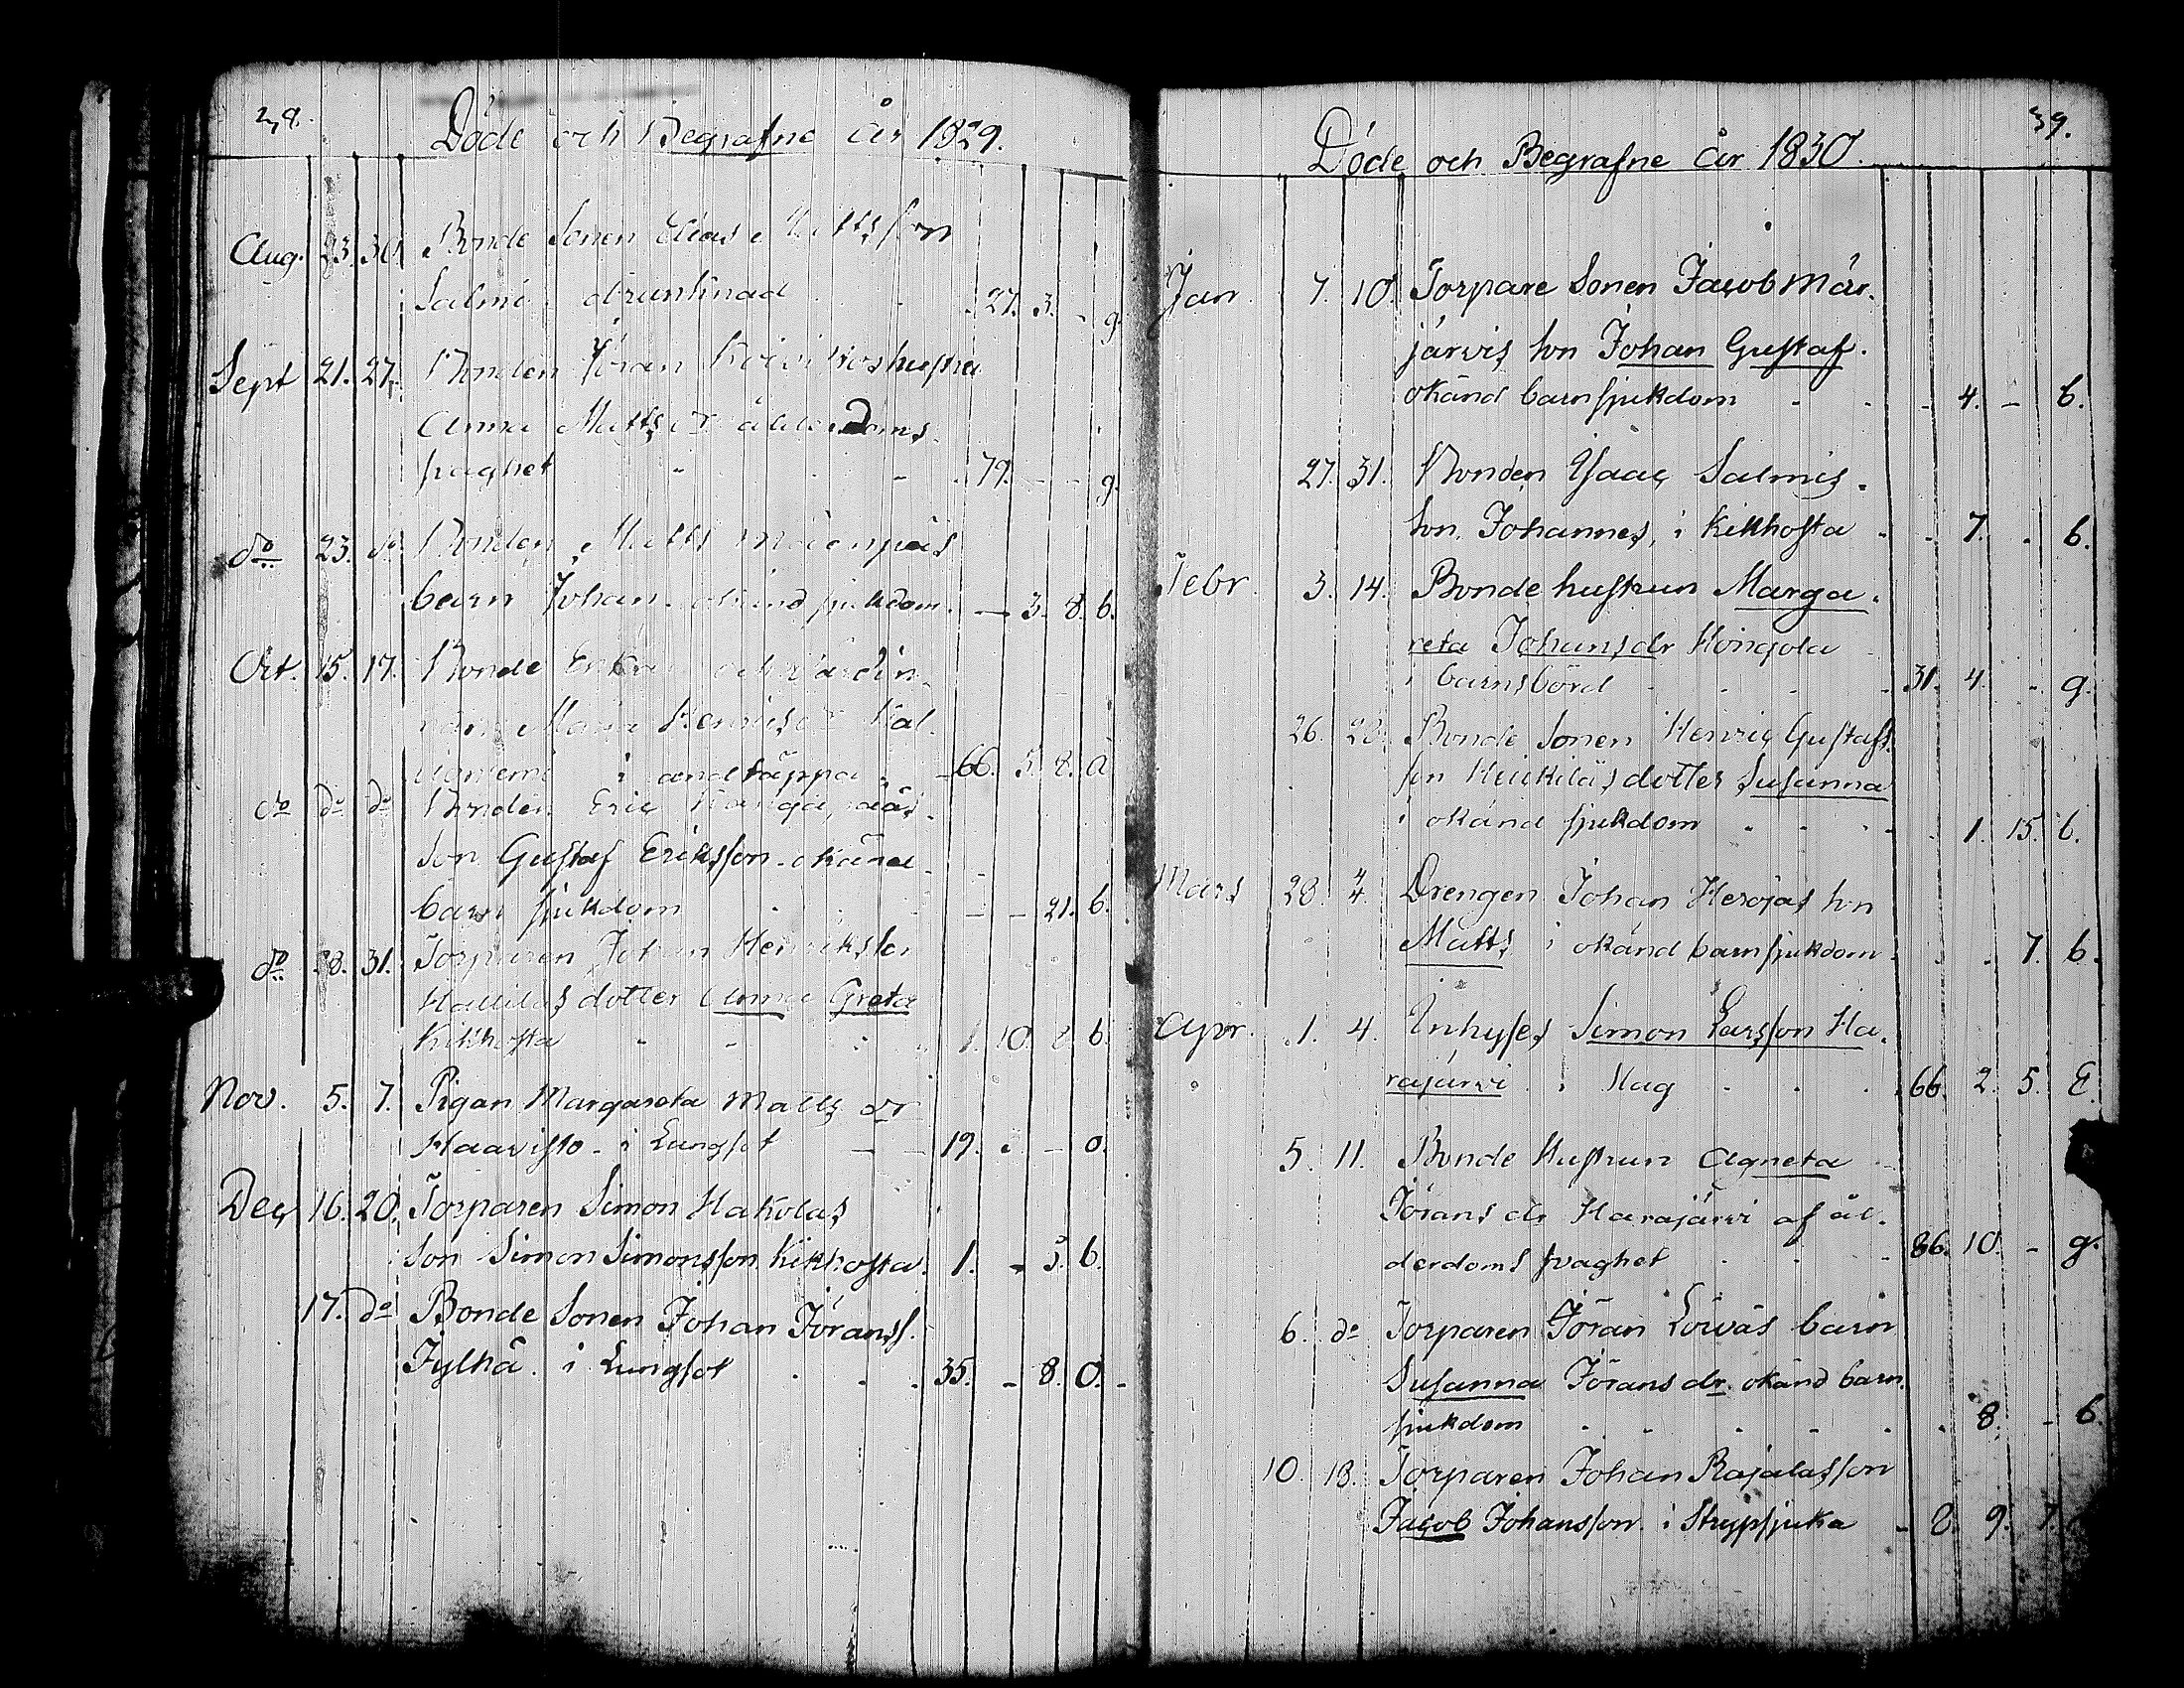 Döde och Begrafne år 1829.
Aug. 23. 30. Bonde Sonen Elias Mattsson
Salmi. drunknad 27. 3. - g.
Sept 21. 27. Bonden Jöran hustru
Anna Matts dr ålderdoms
svaghet 79. - - g.
do 23. do Bonden Matts Mäenpäs
barn Johan okänd sjukdom. - 3. 8. b.
Oct. 15. 17. Bonde Enkan och Värdin-
nan Maria Henrics dr Kal-
lioniemi i andtäppa 66. 5. 8. a
do do do Bonden Eric
Son Gustaf Eriksson okänd
barn sjukdom - - 21. b.
do 28. 31. Torparen Johan Henriksson
Hallilas dotter Anna Greta
Kikhosta 1. 10. 8. b.
Nov. 5. 7. Pigan Margareta Matts dr
Haavisto - i Lungsot - 19. - - o.
Dec 16. 20. Torparen Simon Hakolas
Son Simon Simonsson Kikhosta. 1. - 5. b.
17. do Bonde Sonen Johan Jöranss.
Jylhä. i Lungsot 35. - 8. O. -
39.
Döde och Begrafne år 1830.
Jan. 7. 10. Torpare Sonen Jacob Mär-
järvis son Johan Gustaf.
okänd barnsjukdom - - - 4. - b.
27. 31. Bonden Isaac Salmis
son. Johannes, i Kikhosta - 7. . b.
Febr. 3. 14. Bonde hustrun Marga-
reta Johans dr Hongola
i barnsbörd 31. 4. - g.
26. 28. Bonde Sonen Henric Gustafs
son Heickiläs dotter Susanna
i okänd sjukdom . . 1. 15. b.
Mars 28. 4. Drengen Johan Herojas son
Matts i okänd barnsjukdom. . 7. b.
Apr. 1. 4. Inhyses Simon Larsson Ha-
rajärvi i Slag 66. 2. 5. E.
5. 11. Bonde Hustrun Agneta
Jörans dr Harajärvi af ål-
derdoms svaghet - 86. 10. - g.
6. do Torparen Jöran Löwäs barn
Susanna Jörans dr. okänd barn-
sjukdom . . 8. - b.
10. 18. Torparen Johan Rajalas son
Jacob Johansson i Strypsjuka - 8. 9. 7.